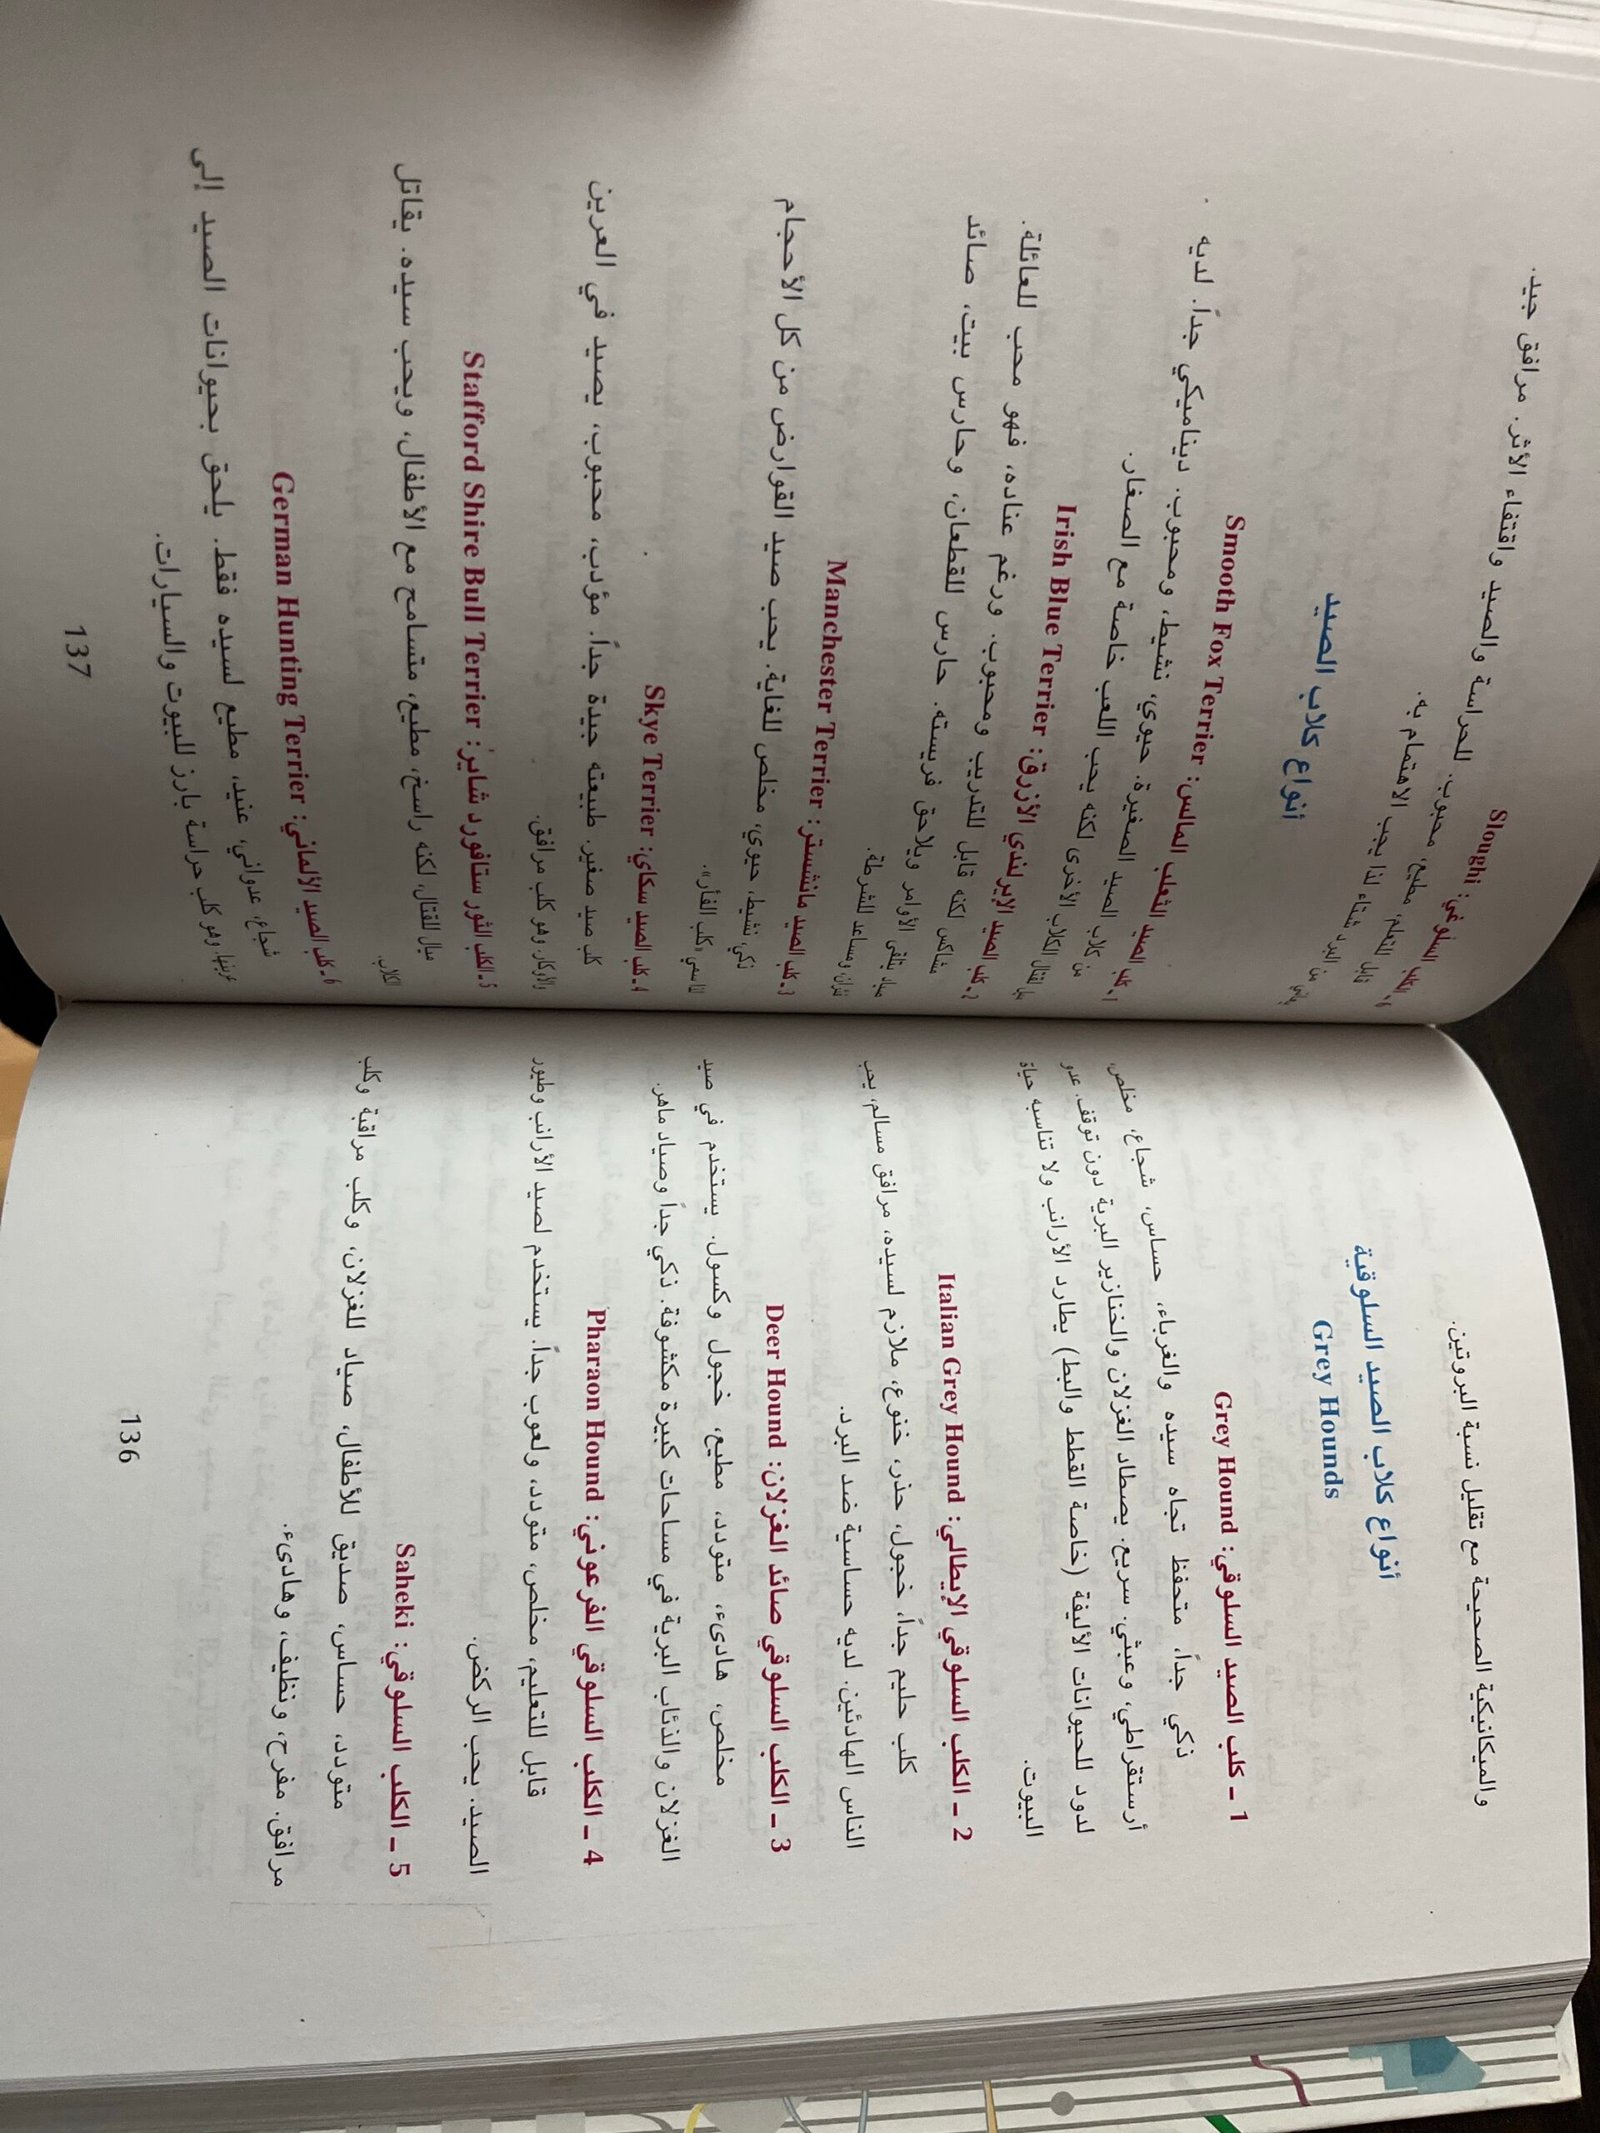 والميكانيكية الصحيحة مع تقليل نسبة البروتين.
أنواع كلاب الصيد السلوقية
Grey Hounds
1 ـ كلب الصيد السلوقي: Grey Hound
ذكي جداً، متحفظ تجاه سيده والغرباء، حساس، شجاع، مخلص،
أرستقراطي، وعبثي. سريع. يصطاد الغزلان والخنازير البرية دون توقف. عدو
لدود للحيوانات الأليفة (خاصة القطط والبط) يطارد الأرانب ولا تناسبه حياة
البيوت.
2 ـ الكلب السلوقي الإيطالي: Italian Grey Hound
كلب حليم جداً، خجول، حذر، خنوع، ملازم لسيده، مرافق مسالم، يحب
الناس الهادئين. لديه حساسية ضد البرد.
3 ـ الكلب السلوقي صائد الغزلان: Deer Hound
مخلص، هادىء، متودد، مطيع، خجول وكسول. يستخدم في صيد
الغزلان والذئاب البرية في مساحات كبيرة مكشوفة. ذكي جداً وصياد ماهر.
4 ـ الكلب السلوقي الفرعوني: Pharaon Hound
قابل للتعليم، مخلص، متودد، ولعوب جداً. يستخدم لصيد الأرانب وطيور
الصيد. يحب الركض.
5 ـ الكلب السلوقي: Saheki
متودد، حساس، صديق للأطفال، صياد للغزلان، وكلب مراقبة وكلب
مرافق. مفرح، ونظيف، وهادىء.
136
6 ـ الكلب السلوغي: Sloughi
قابل للتعلم، مطيع، محبوب. للحراسة والصيد واقتفاء الأثر. مرافق جيد.
يعاني من البرد شتاء لذا يجب الاهتمام به.
أنواع كلاب الصيد
1 ـ كلب الصيد الثعلب المالس: Smooth Fox Terrier
من كلاب الصيد الصغيرة. حيوي، نشيط، ومحبوب. ديناميكي جداً. لديه
ميل لقتال الكلاب الأخرى لكنه يحب اللعب خاصة مع الصغار.
2 ـ كلب الصيد الإيرلندي الأزرق: Irish Blue Terrier
مشاكس لكنه قابل للتدريب ومحبوب. ورغم عناده، فهو محب للعائلة.
صياد يتلقى الأوامر ويلاحق فريسته. حارس للقطعان، وحارس بيت، صائد
فئران ومساعد للشرطة.
3 ـ كلب الصيد مانشستر: Manchester Terrier
ذكي، نشيط، حيوي، مخلص للغاية. يحب صيد القوارض من كل الأحجام
لذا سمي «كلب الفأر».
4 ـ كلب الصيد سكاي: Skye Terrier
كلب صيد صغير. طبيعته جيدة جداً. مؤدب، محبوب، يصيد في العرين
والأوكار. وهو كلب مرافق.
5 ـ الكلب الثور ستافورد شاير: Stafford Shire Bull Terrier
ميال للقتال، لكنه راسخ، مطيع، متسامح مع الأطفال، ويحب سيده. يقاتل
الكلاب.
6 ـ كلب الصيد الألماني: German Hunting Terrier
شجاع، عدواني، عنيد، مطيع لسيده فقط. يلحق بحيوانات الصيد إلى
عرينها. وهو كلب حراسة بارز للبيوت والسيارات.
137